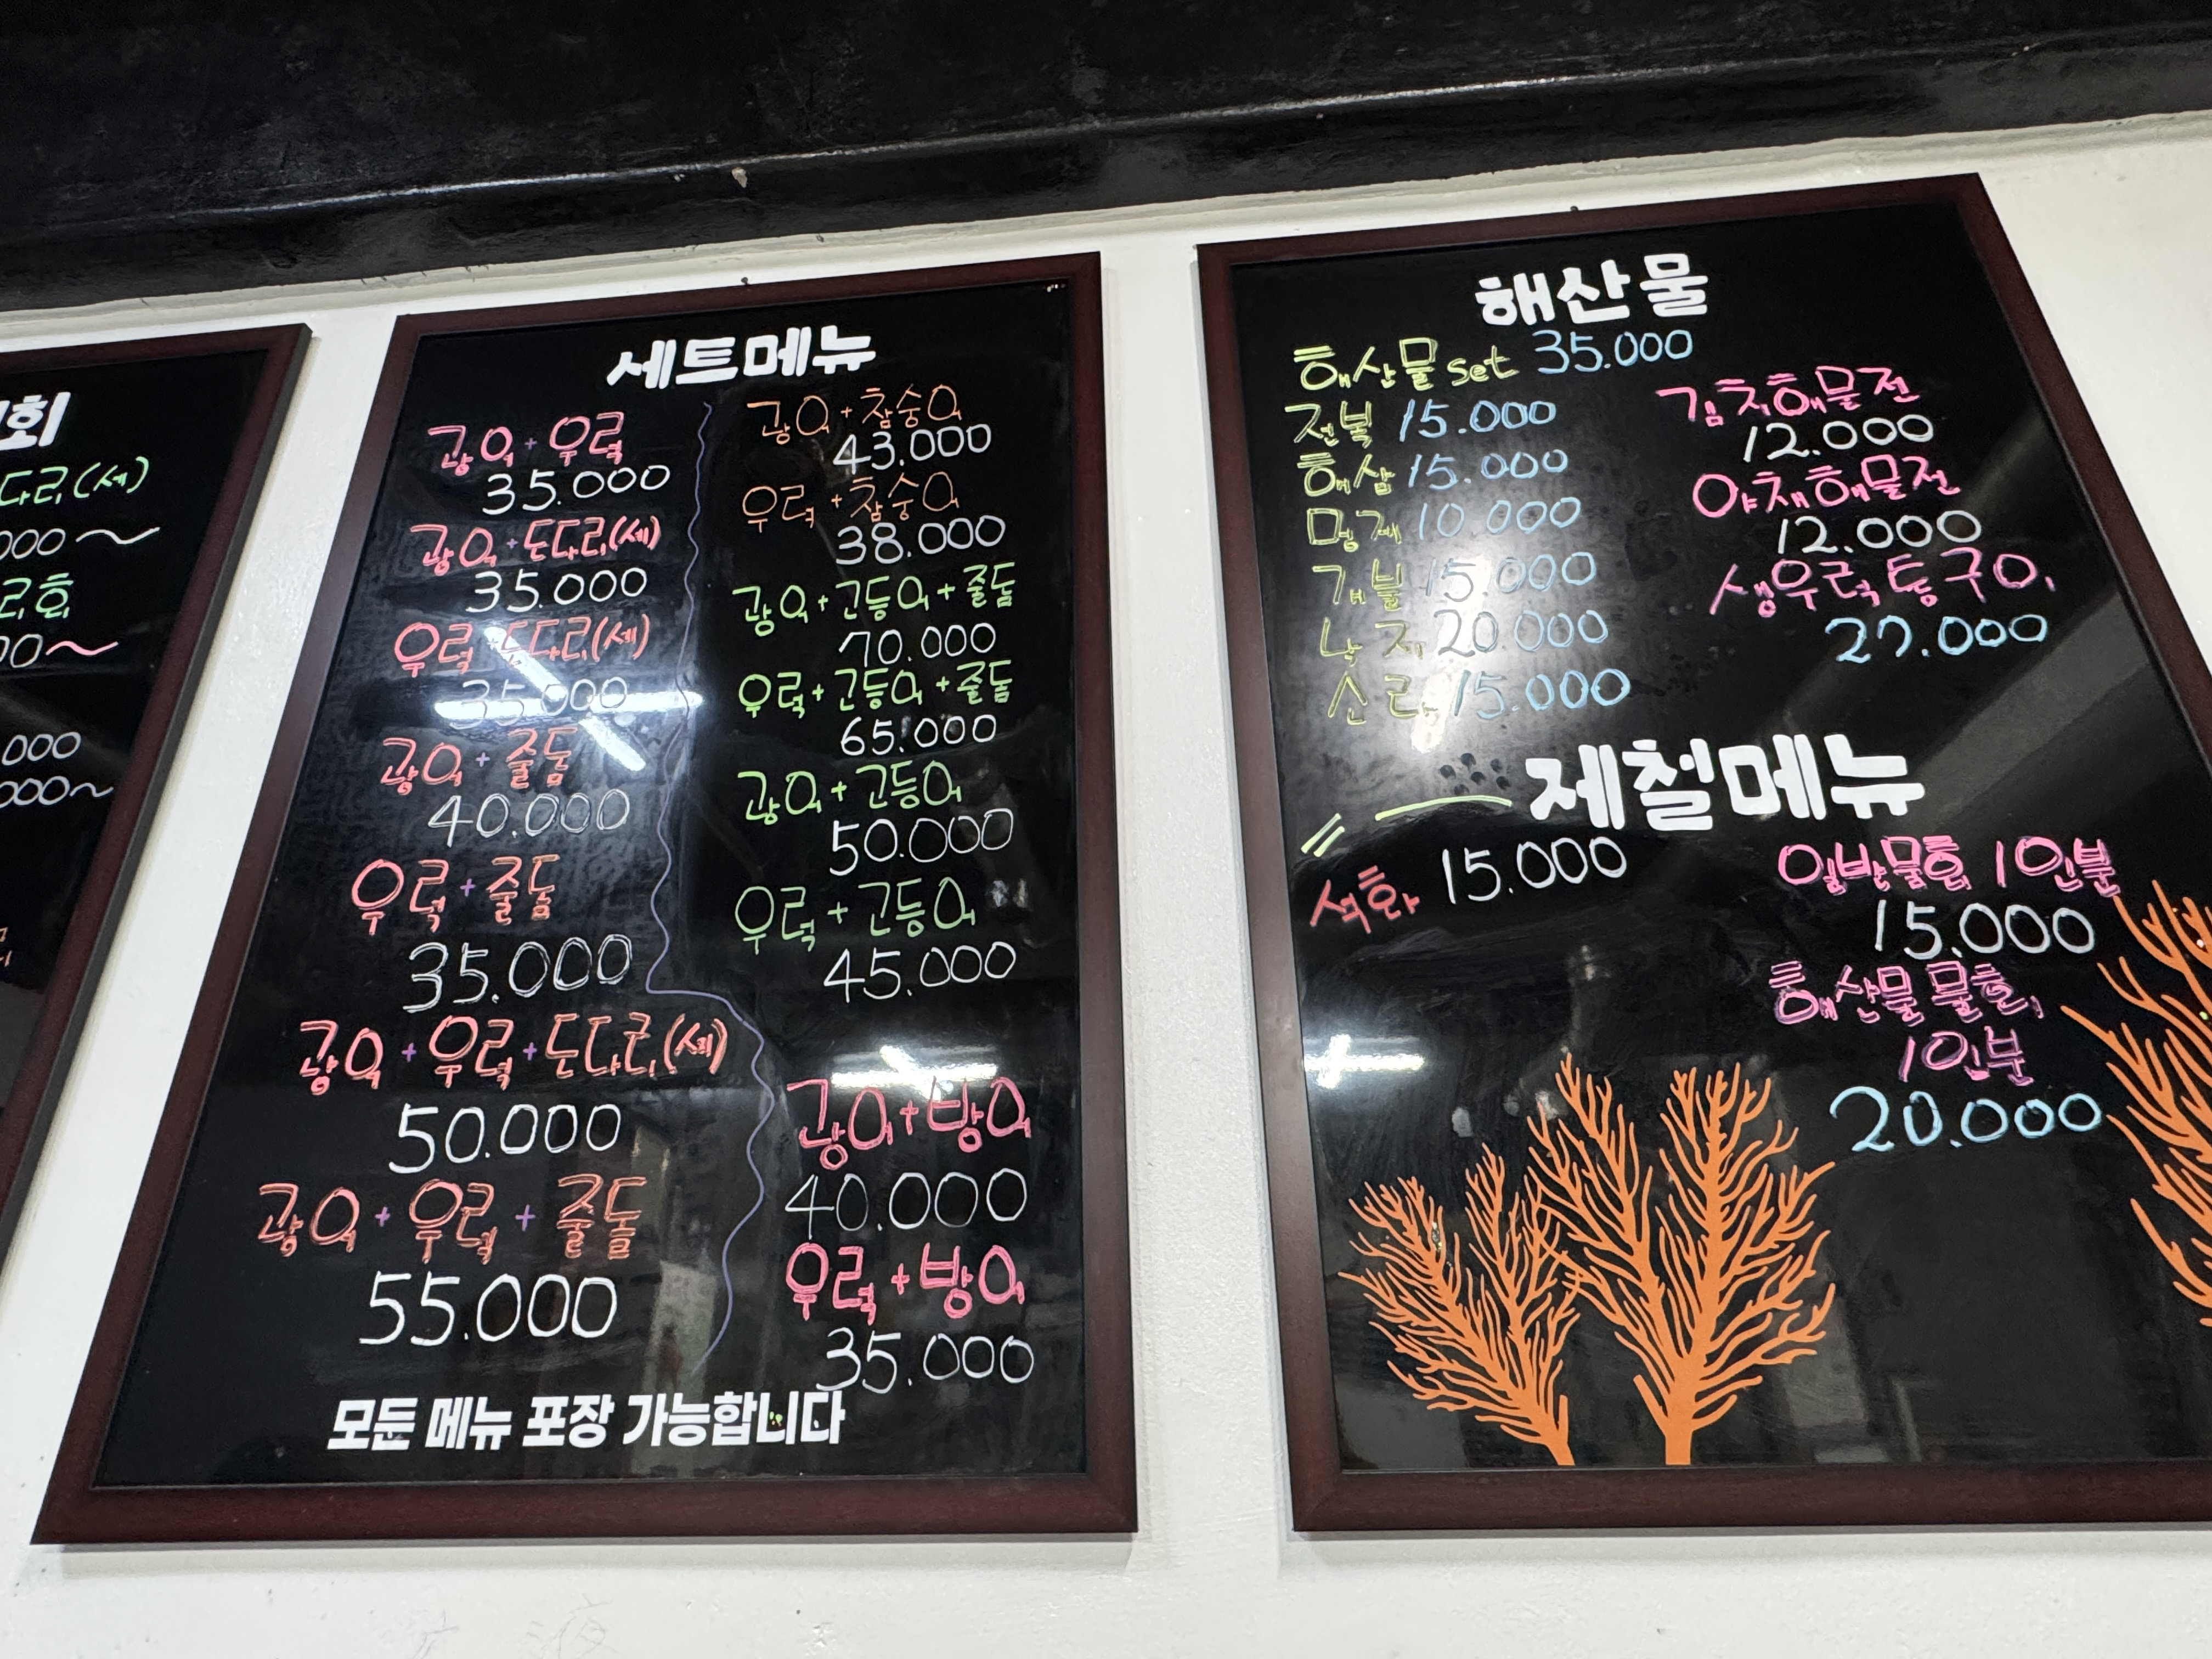 회
다리(세)
000~
00~
.000
000~
세트메뉴
광어+우럭
35.000
광어+도다리(세)
35.000
우럭+도다리(세)
35.000
광어+줄돔
40.000
우럭+줄돔
35.000
광어+우럭+도다리(세)
50.000
광어+우럭+줄돔
55.000
광어+참숭어
43.000
우럭+참숭어
38.000
광어+고등어+줄돔
70.000
우럭+고등어+줄돔
65.000
광어+고등어
50.000
우럭+고등어
45.000
광어+방어
40.000
우럭+방어
35.000
모든 메뉴 포장 가능합니다
해산물
해산물 set 35.000
전복 15.000
해삼 15.000
멍게 10.000
개불 15.000
낙지 20.000
소라 15.000
김치해물전
12.000
야채해물전
12.000
생우럭통구이
27.000
제철메뉴
석화 15.000
일반물회 1인분
15.000
해산물 물회
1인분
20.000